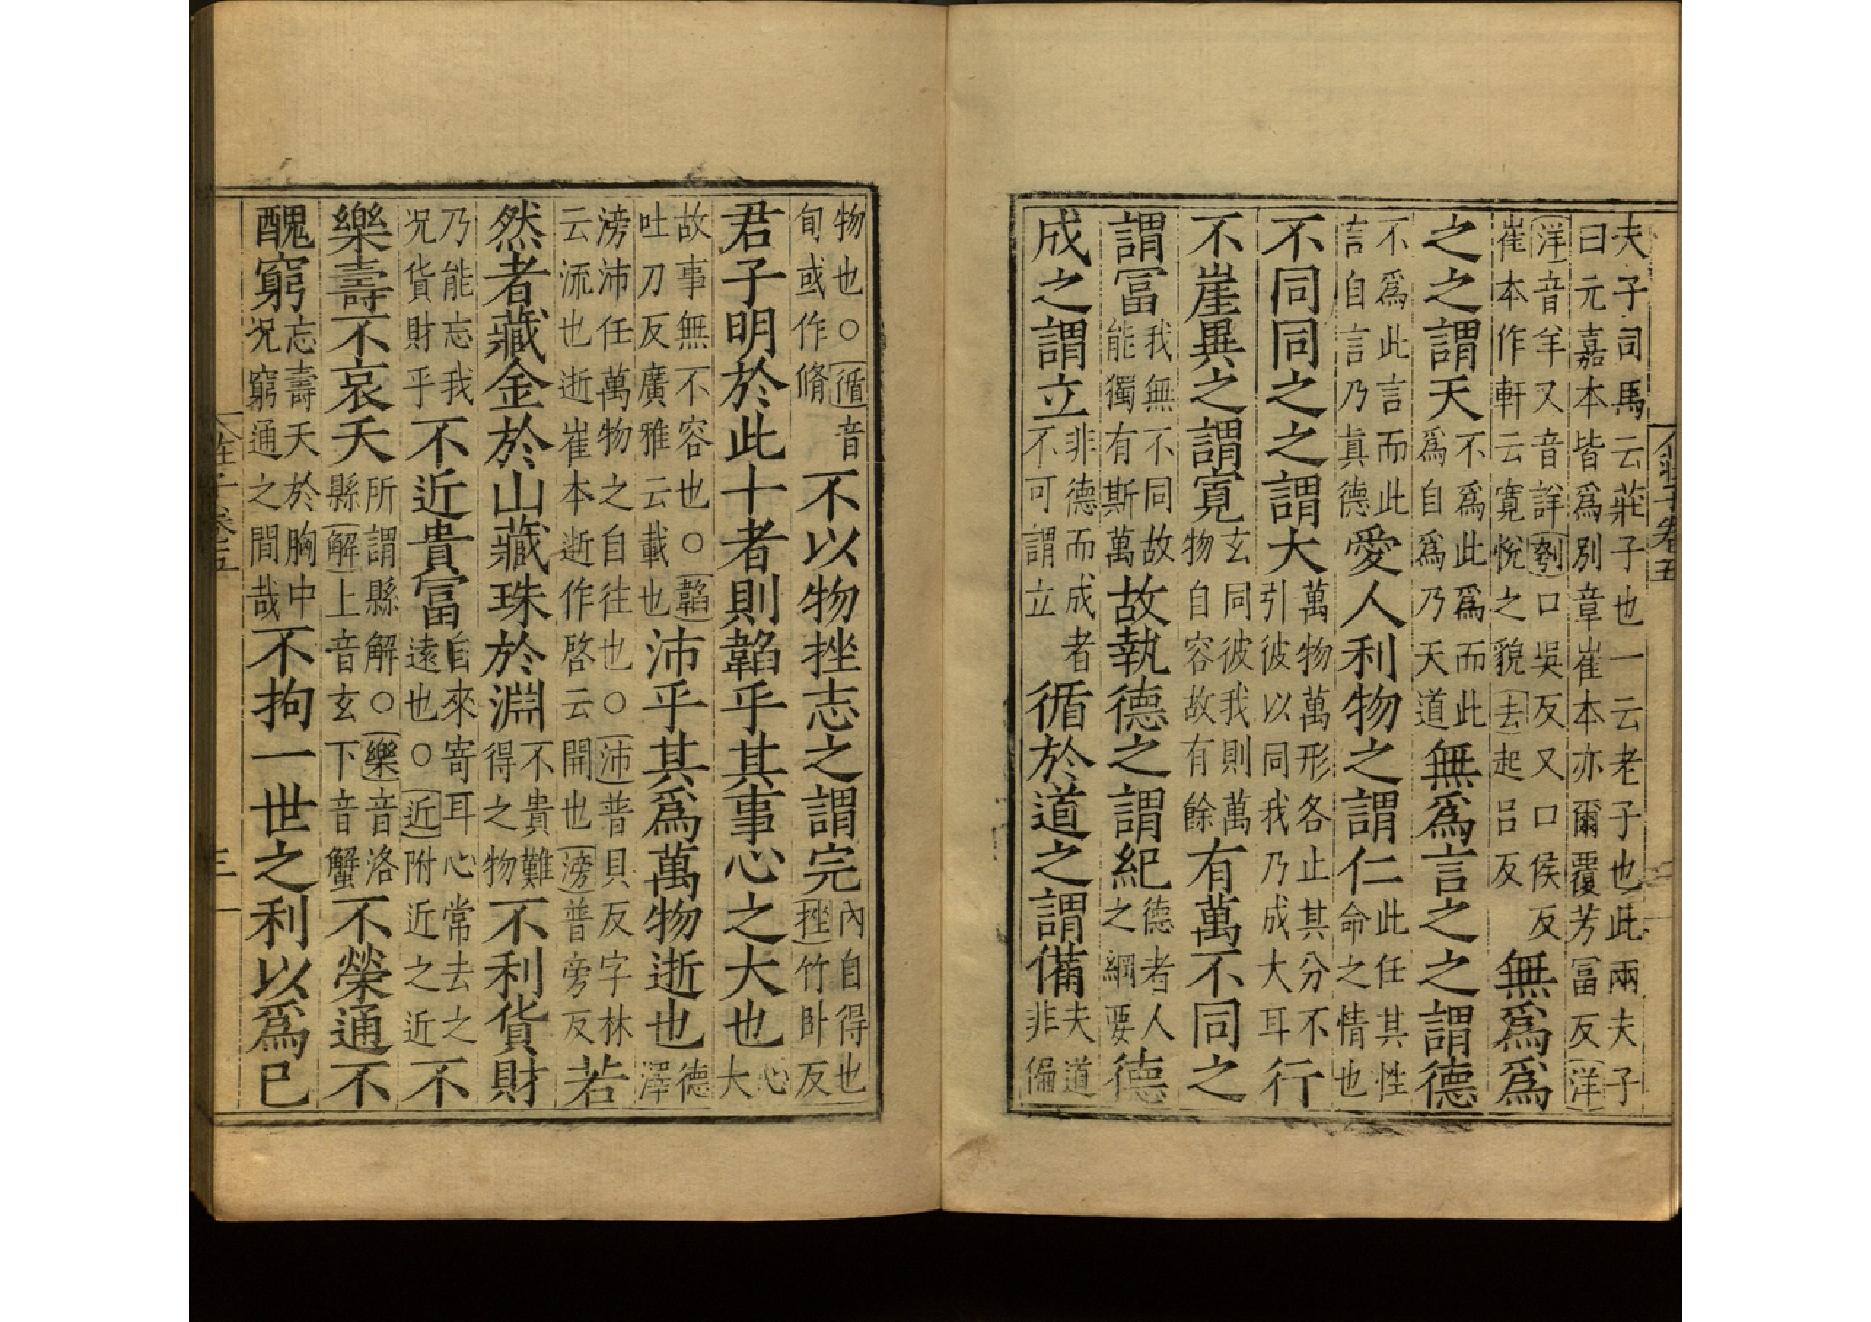 夫子司馬云莊子也一云老子也此兩夫子
曰元嘉本皆爲別章崔本亦爾覆芳富反洋
洋音羊又音詳刳口吳反又口侯反
崔本作軒云寛悅之貌去起呂反
無爲爲
之之謂天
不爲此爲而此
爲自爲乃天道
無爲言之之謂德
不爲此言而此
言自言乃真德
愛人利物之謂仁
此任其性
命之情也
不同同之之謂大
萬物萬形各止其分不
引彼以同我乃成大耳
行
不崖異之謂寛
玄同彼我則萬
物自容故有餘
有萬不同之
謂富
我無不同故
能獨有斯萬
故執德之謂紀
德者人
之綱要
德
成之謂立
非德而成者
不可謂立
循於道之謂備
夫道
非偏
物也○循音
旬或作脩
不以物挫志之謂完
內自得也
挫竹卧反
君子明於此十者則韜乎其事心之大也
心
大
故事無不容也○韜
吐刀反廣雅云載也
沛乎其爲萬物逝也
德
澤
滂沛任萬物之自往也○沛普貝反字林
云流也逝崔本逝作啓云開也滂普旁反
若
然者藏金於山藏珠於淵
不貴難
得之物
不利貨財
乃能忘我
况貨財乎
不近貴富
自來寄耳心常去之
遠也○近附近之近
不
樂壽不哀夭
所謂縣解○樂音洛
縣解上音玄下音蟹
不榮通不
醜窮
忘壽夭於胸中
况窮通之間哉
不拘一世之利以爲已
莊子卷五
三